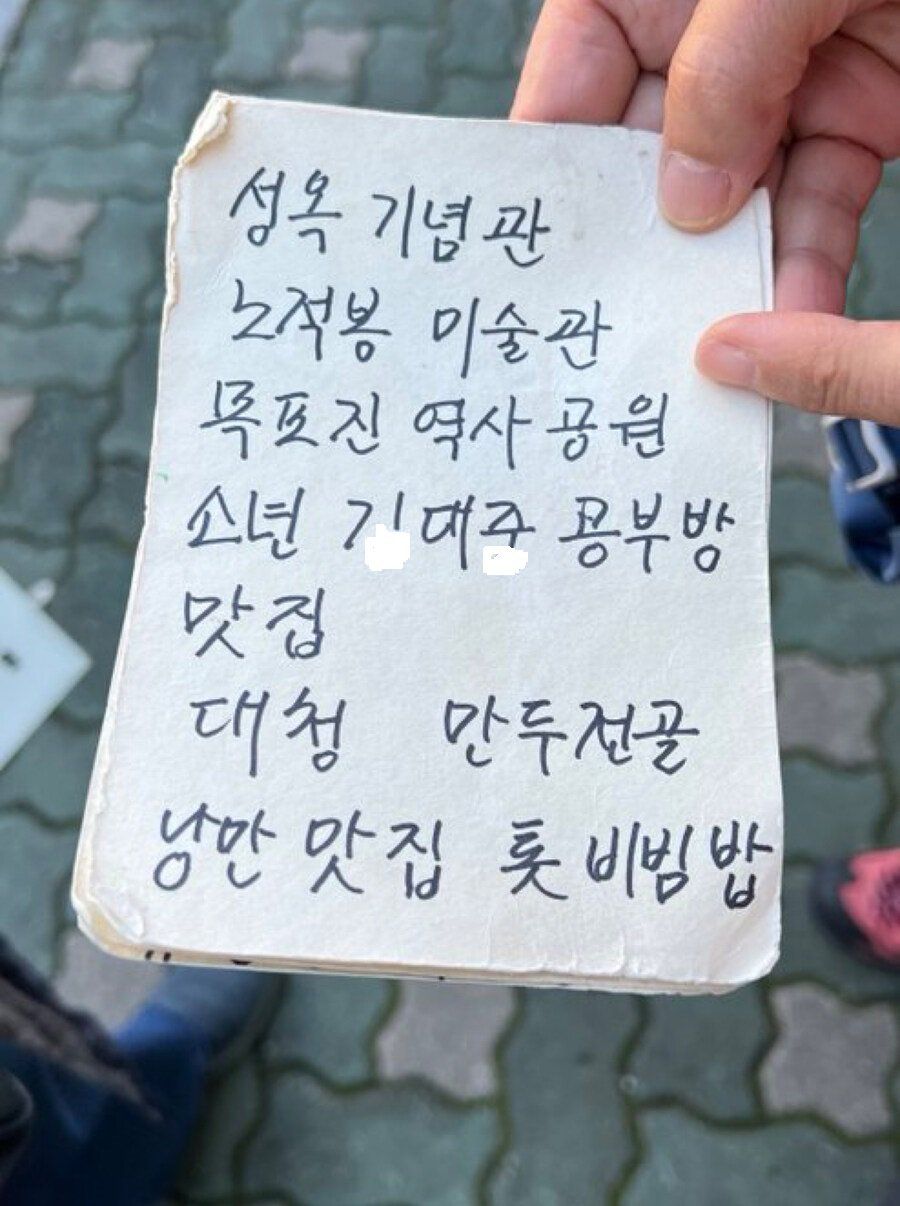 성옥 기념관
노적봉 미술관
목포진 역사공원
소년 공부방
맛집
대청 만두전골
낭만 맛집 톳 비빔밥